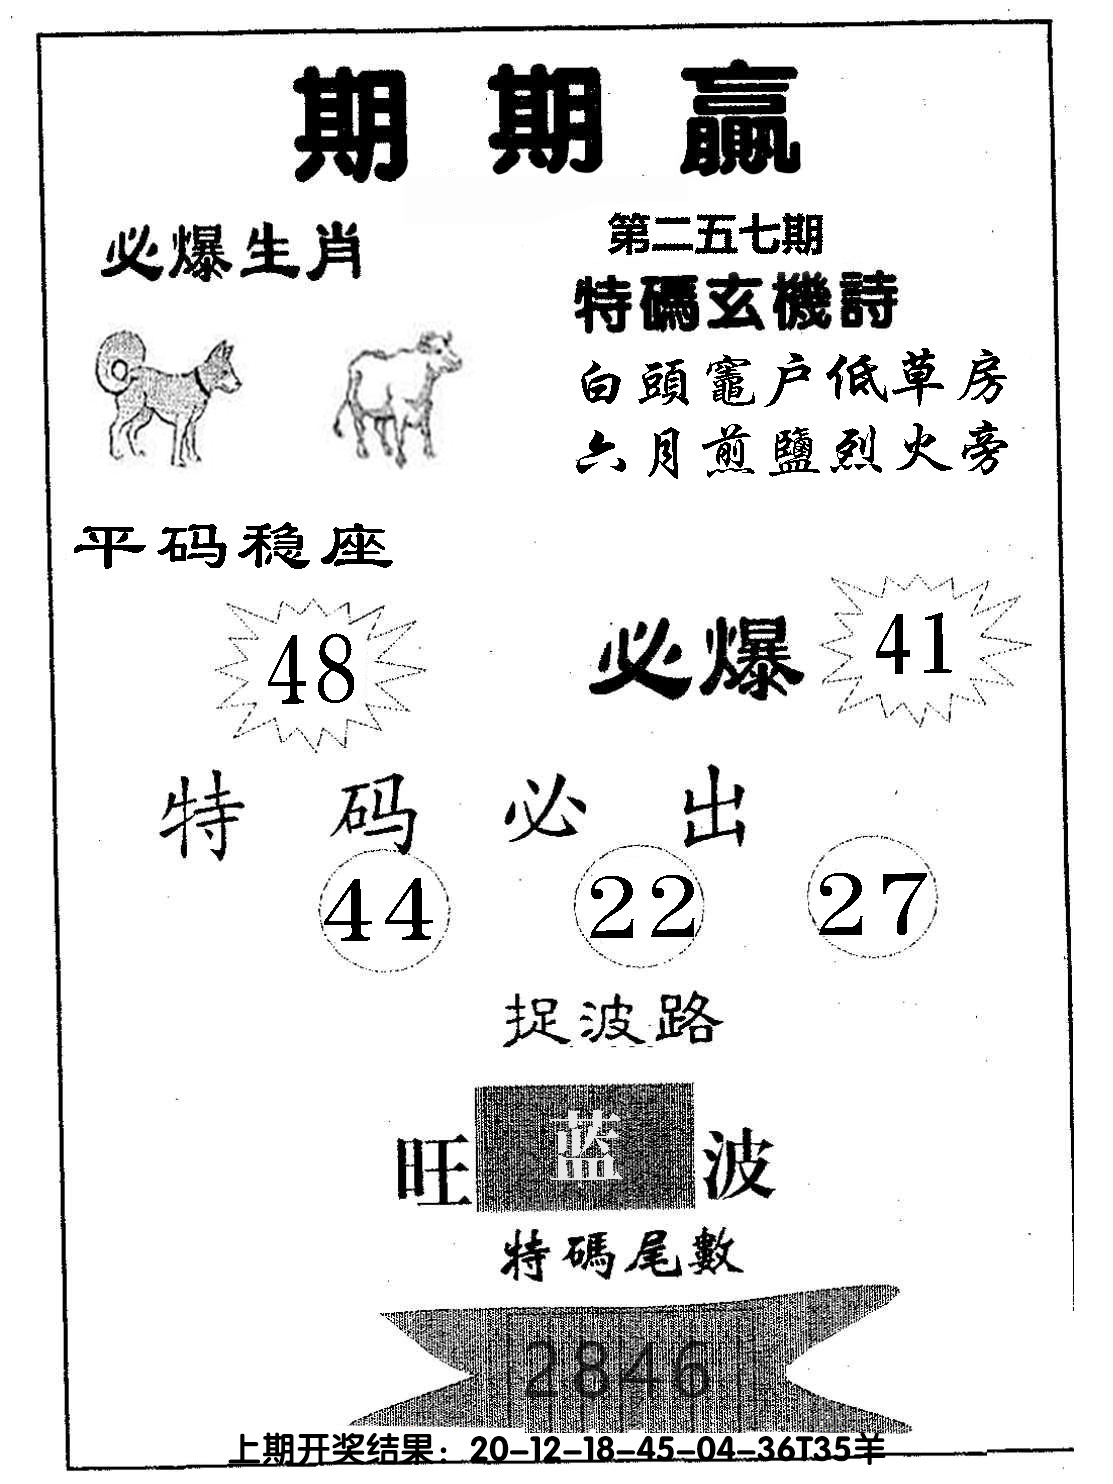 期期贏
必爆生肖
第二五七期
特碼玄機詩
白頭竈户低草房
六月煎鹽烈火旁
平码稳座
48
必爆 41
特码必出
44 22 27
捉波路
旺 蓝 波
特碼尾數
2846
上期开奖结果：20-12-18-45-04-36T35羊